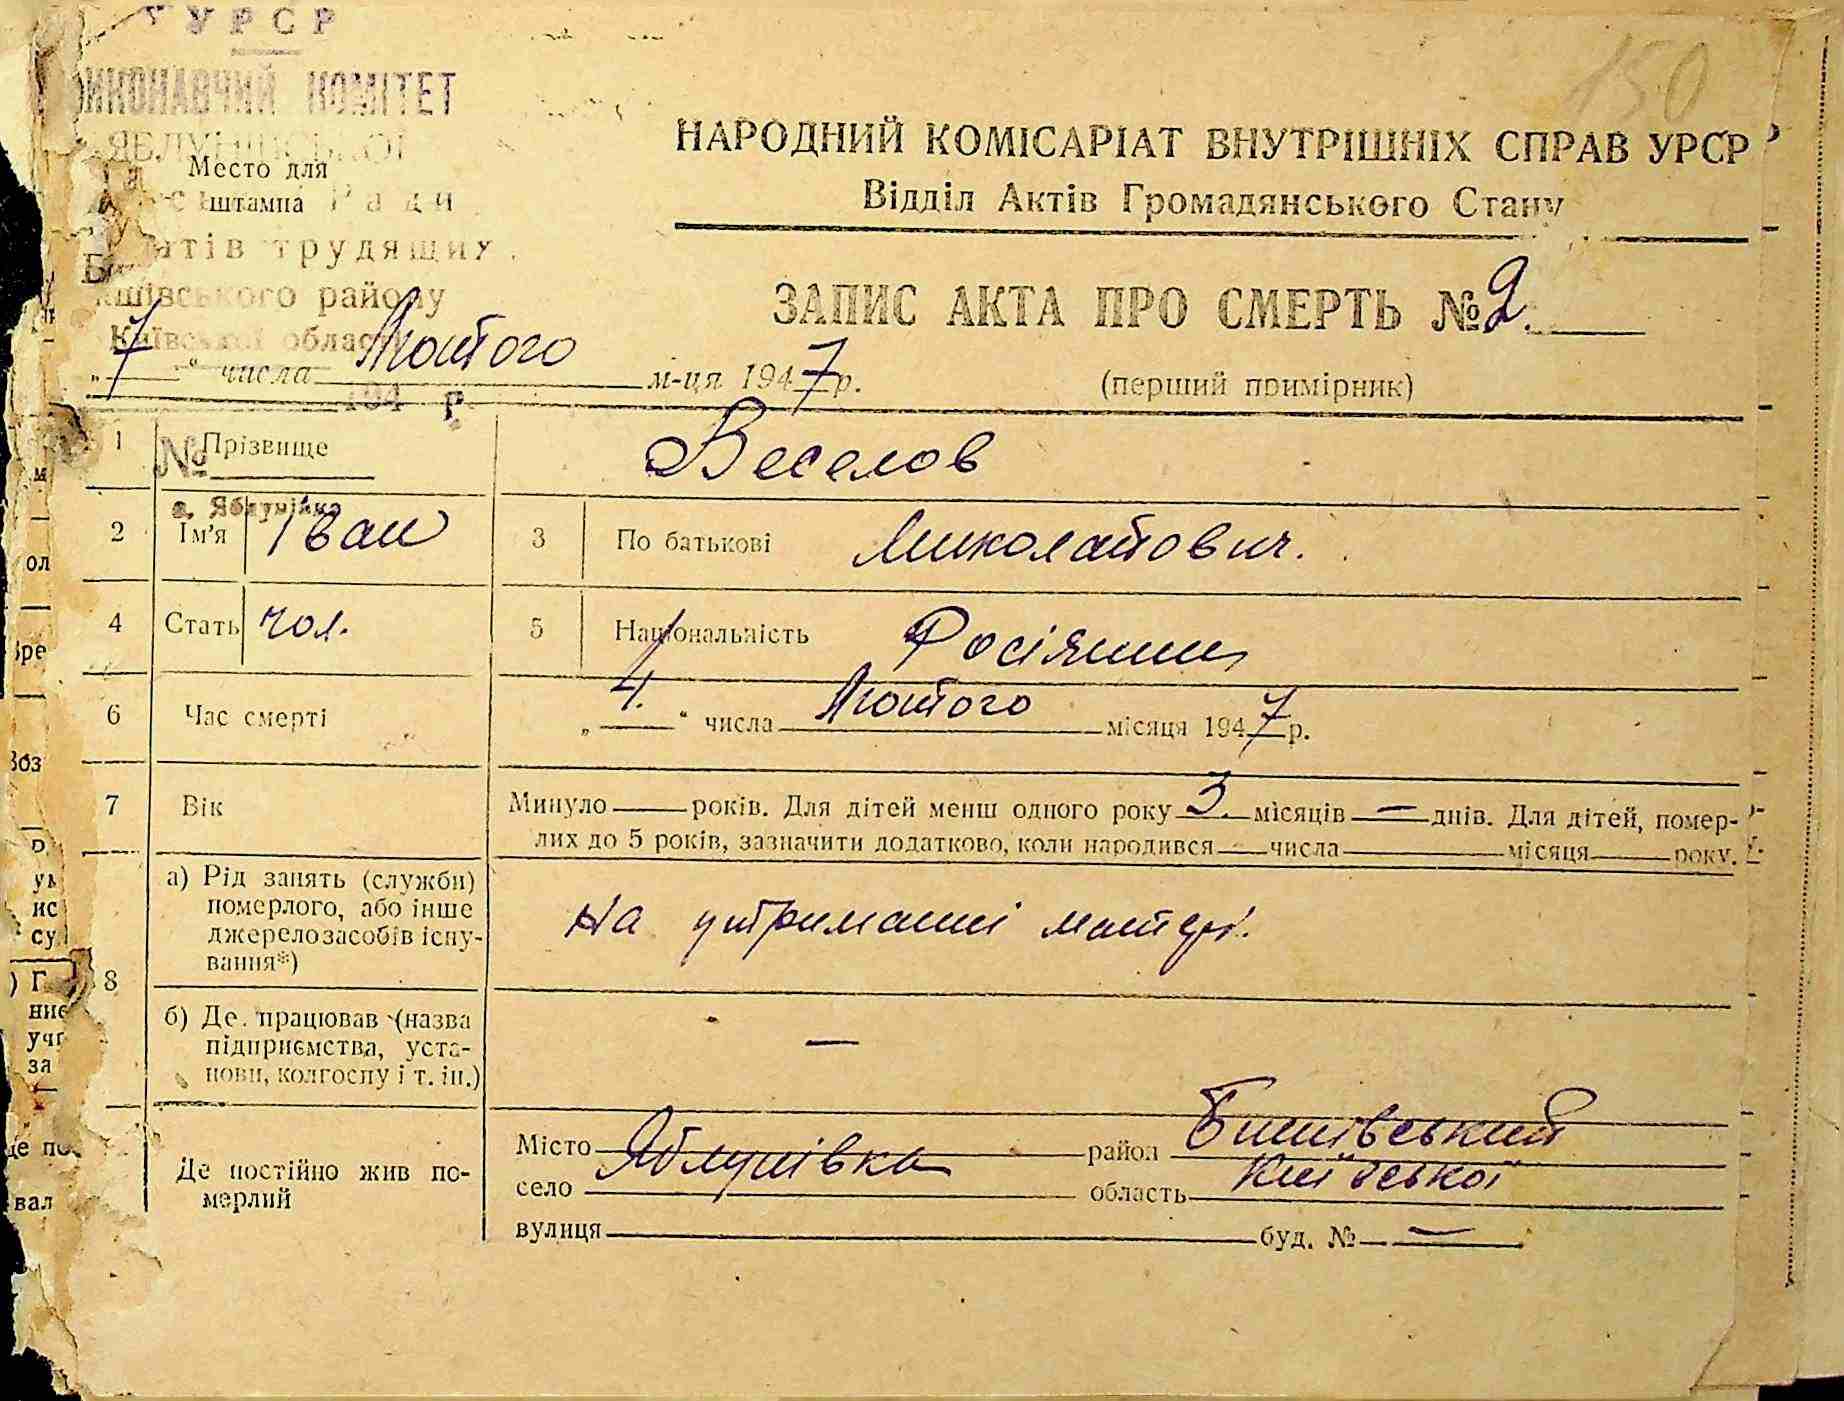 УРСР
ВИКОНАВЧИЙ КОМІТЕТ
ЯБЛУНІВСЬКОЇ
Место для
штампа Ради
трудящих
району
Київської області
194 р.
№
с. Яблунівка
150
НАРОДНИЙ КОМІСАРІАТ ВНУТРІШНІХ СПРАВ УРСР
Відділ Актів Громадянського Стану
ЗАПИС АКТА ПРО СМЕРТЬ № 2.
„7“ числа Лютого м-ця 1947 р. (перший примірник)
1 Прізвище Веселов
2 Ім’я Іван 3 По батькові Миколайович.
4 Стать чол. 5 Національність Росіянин
6 Час смерті „4.“ числа Лютого місяця 1947 р.
7 Вік Минуло — років. Для дітей менш одного року 3. місяців — днів. Для дітей, помер-
лих до 5 років, зазначити додатково, коли народився числа місяця року.
8 а) Рід занять (служби)
померлого, або інше
джерело засобів існу-
вання*) На утриманні матері.
б) Де працював (назва
підприємства, уста-
нови, колгоспу і т. ін.) —
Де постійно жив по-
мерлий
Місто Яблунівка район Бишівський
село область Київської
вулиця буд. № —